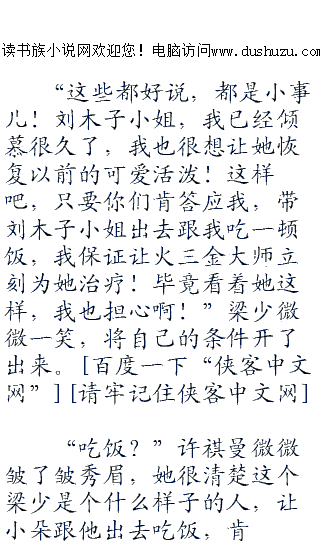 读书族小说网欢迎您！电脑访问www.dushuzu.com
“这些都好说，都是小事
儿！刘木子小姐，我已经倾
慕很久了，我也很想让她恢
复以前的可爱活泼！这样
吧，只要你们肯答应我，带
刘木子小姐出去跟我吃一顿
饭，我保证让火三金大师立
刻为她治疗！毕竟看着她这
样，我也担心啊！”梁少微
微一笑，将自己的条件开了
出来。[百度一下“侠客中文
网”][请牢记住侠客中文网]
“吃饭？”许祺曼微微
皱了皱秀眉，她很清楚这个
梁少是个什么样子的人，让
小朵跟他出去吃饭，肯